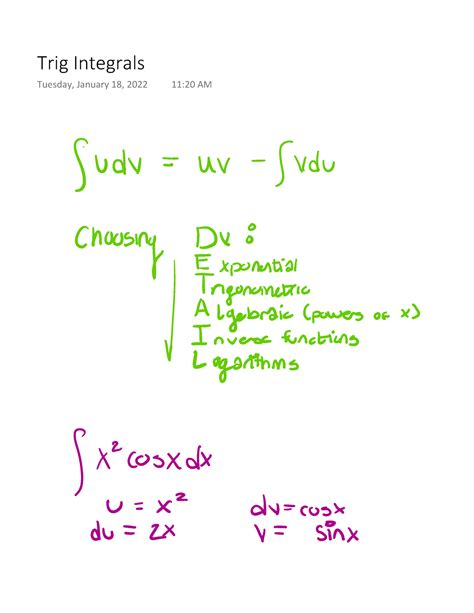 Trig Integrals
Tuesday, January 18, 2022 11:20 AM
∫udv = uv - ∫vdu
Choosing Dv :
Exponential
Trigonometric
Algebraic (powers of x)
Inverse functions
Logarithms
∫ x² cosx dx
u = x² dv = cosx
du = 2x v = sinx